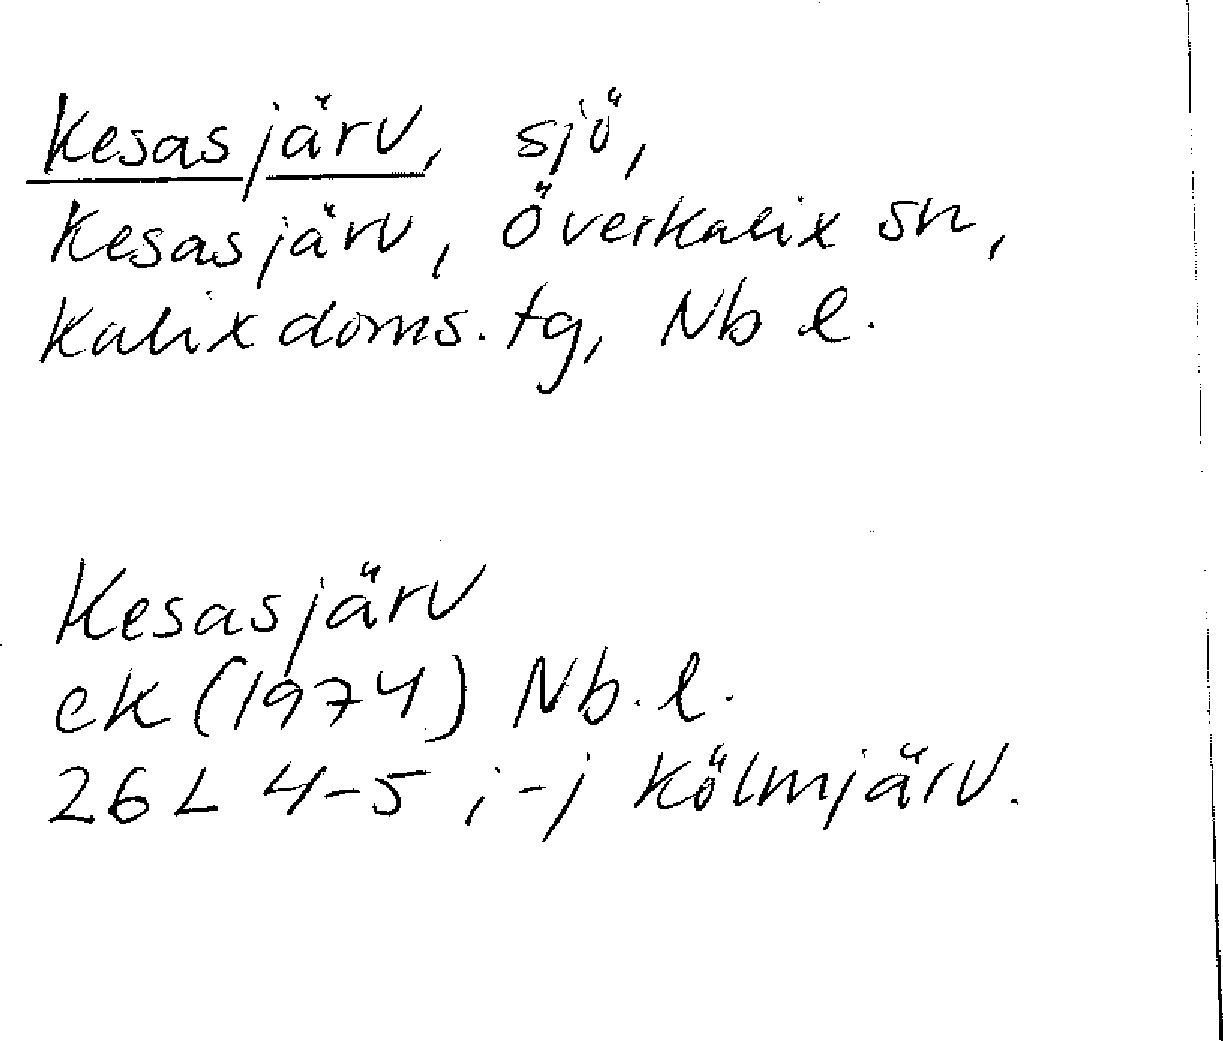 Kesasjärv, sjö,
Kesasjärv, Överkalix sn,
Kalix doms. tg, Nb l.
Kesasjärv
ek (1974) Nb. l.
26 L 4-5 i-j Kölmjärv.